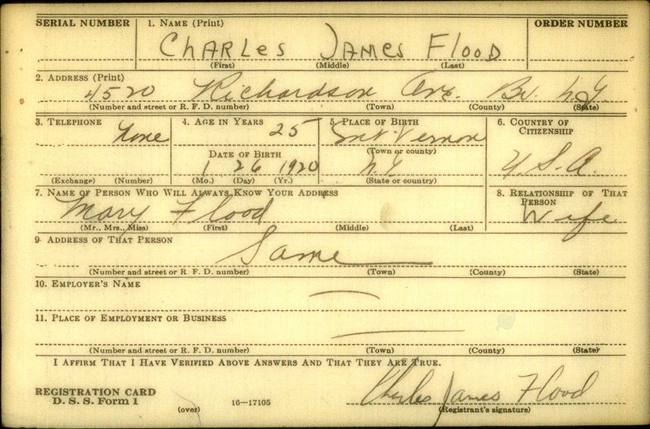 SERIAL NUMBER 1. NAME (Print) ORDER NUMBER
CHARLES JAMES FLOOD
(First) (Middle) (Last)
2. ADDRESS (Print)
4520 Richardson Ave. Bx. N.Y.
(Number and street or R. F. D. number) (Town) (County) (State)
3. TELEPHONE 4. AGE IN YEARS 5. PLACE OF BIRTH 6. COUNTRY OF CITIZENSHIP
None 25 Mt Vernon
(Town or county)
DATE OF BIRTH
1 26 1920 N.Y. U.S.A.
(Exchange) (Number) (Mo.) (Day) (Yr.) (State or country)
7. NAME OF PERSON WHO WILL ALWAYS KNOW YOUR ADDRESS 8. RELATIONSHIP OF THAT PERSON
Mary Flood Wife
(Mr., Mrs., Miss) (First) (Middle) (Last)
9. ADDRESS OF THAT PERSON
Same
(Number and street or R. F. D. number) (Town) (County) (State)
10. EMPLOYER'S NAME
—
11. PLACE OF EMPLOYMENT OR BUSINESS
—
(Number and street or R. F. D. number) (Town) (County) (State)
I AFFIRM THAT I HAVE VERIFIED ABOVE ANSWERS AND THAT THEY ARE TRUE.
REGISTRATION CARD
D. S. S. Form 1 (over) 16-17105
Charles James Flood
(Registrant's signature)